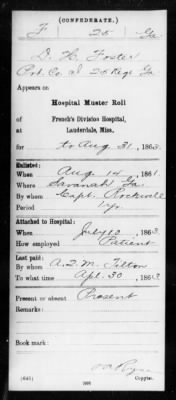 (CONFEDERATE.)
F 25 Ga
D. H. Foster
Pvt. Co. I 25 Reg. Ga
Appears on
Hospital Muster Roll
of French's Division Hospital,
at Lauderdale, Miss.
for to Aug 31, 1863.
Enlisted:
When Aug 14, 1861.
Where Savanah Ga.
By whom Capt. Rockwell
Period 1 yr.
Attached to Hospital:
When July 10, 1863.
How employed Patient
Last paid:
By whom A.Q.M. Tilton
To what time Apl. 30, 1863
Present or absent Present
Remarks:
Book mark:
(645)
Copyist.